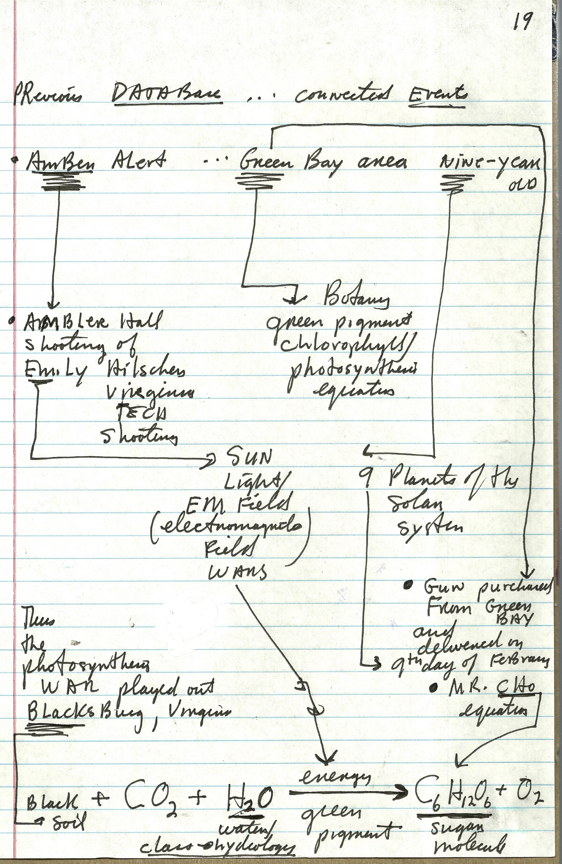 19
PRevious DATABase ... connected Events
• AmBer Alert ... Green Bay area Nine-year
OLD
Botany
green pigment
chlorophyll/
photosynthesis
equation
• AmBLer Hall
shooting of
Emily Hilscher
Virginia
TECH
Shooting
SUN
Light/
EM Field
(electromagnetic
Field
WARS)
9 Planets of the
Solar
System
• Gun purchased
From Green
BAY
and
delivered on
9th day of February
• MR. CHO
equation
Thus
the
photosynthesis
WAR played out
BLACKSBurg, Virginia
Black + CO2 + H2O energy C6H12O6 + O2
soil
water/
class → hydrology
green
pigment
sugar
molecule